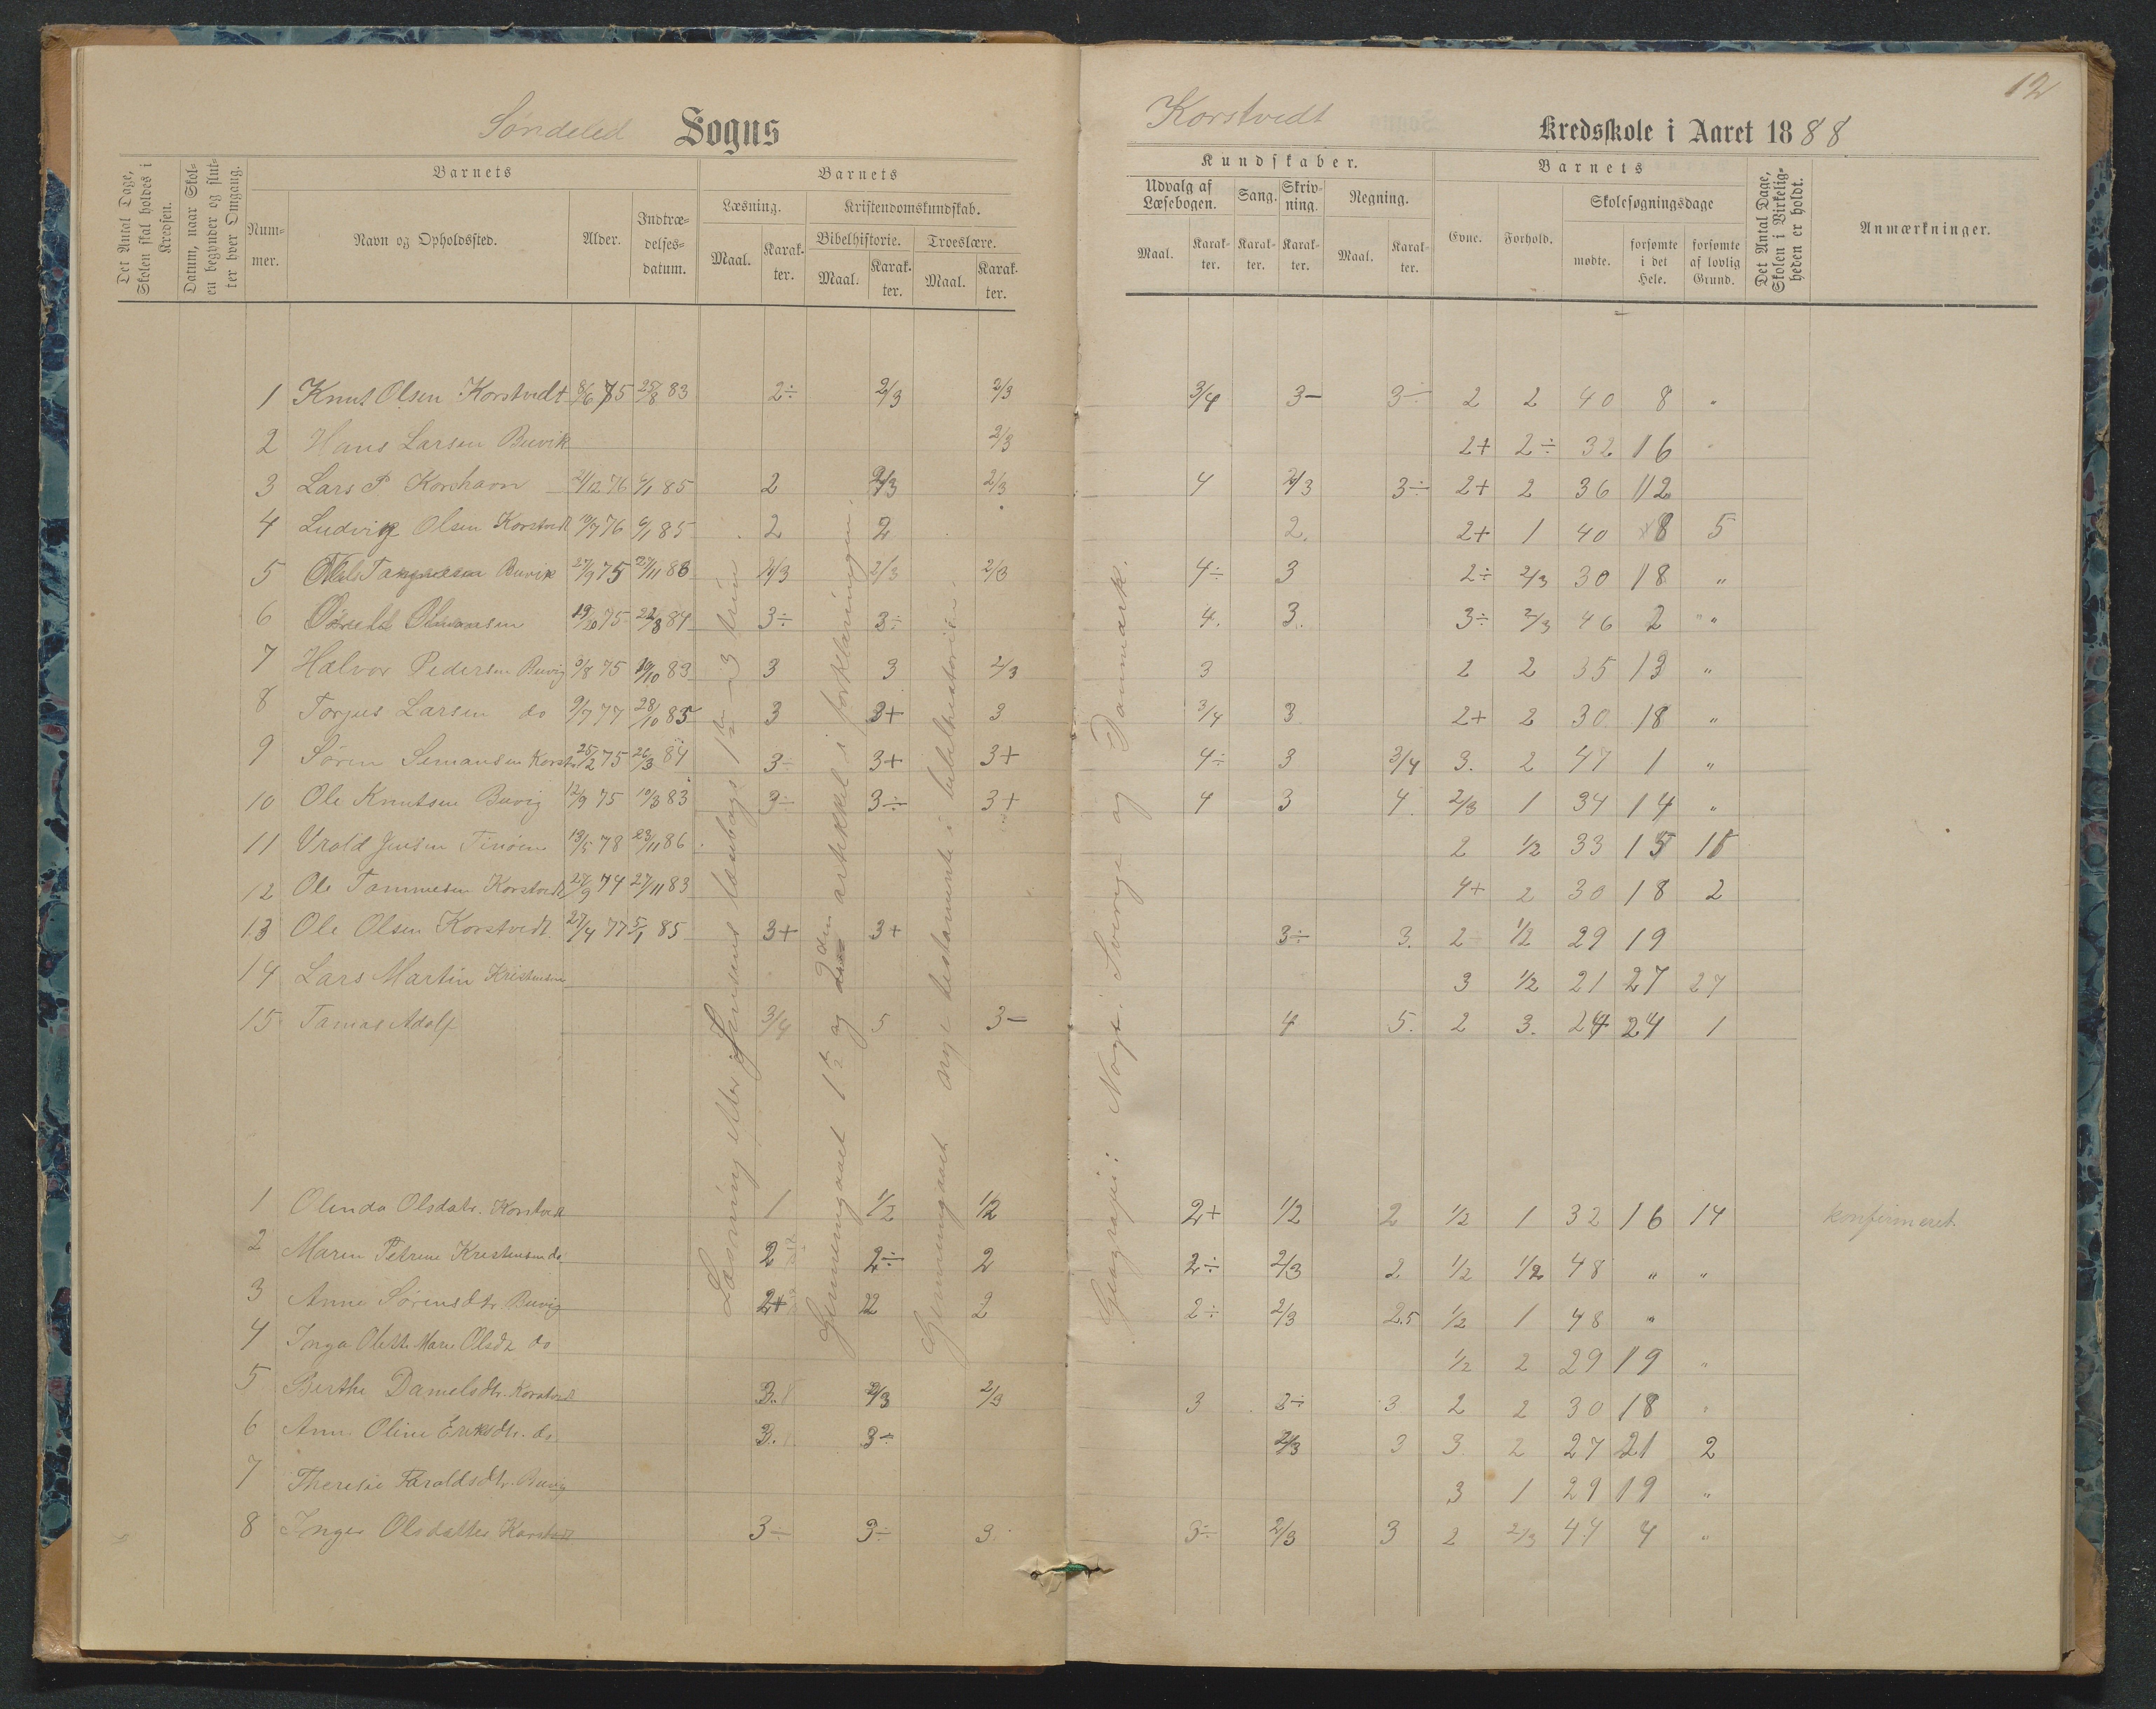 Søndeled Sogns
Det Antal Dage, Skolen skal holdes i Kredsen.
Datum, naar Skolen begynder og slutter hver Omgang.
Barnets
Nummer.
Navn og Opholdssted.
Alder.
Indtrædelsesdatum.
Barnets
Læsning.
Maal.
Karakter.
Kristendomskundskab.
Bibelhistorie.
Maal.
Karakter.
Troeslære.
Maal.
Karakter.
1 Knut Olsen Korstvedt 8/6 75 25/8 83 2÷ 2/3 2/3
2 Hans Larsen Buvik 2/3
3 Lars P 21/12 76 6/1 85 2 2/3 2/3
4 Ludvig Olsen Korstvedt 10/7 76 6/1 85 2 2
5 Buvik 27/9 75 27/11 83 2/3 2/3 2/3
6 19/10 75 22/3 84 3÷ 3÷
7 Halvor Pedersen Buvig 5/8 75 19/10 83 3 3 2/3
8 Torjus Larsen do 9/7 77 28/10 85 3 3+ 3
9 Søren Simansen Korstv 25/2 75 26/3 84 3÷ 3+ 3+
10 Ole Knutsen Buvig 12/9 75 19/3 83 3÷ 3÷ 3+
11 Jensen 13/5 78 23/11 86
12 Ole Tommesen Korstvedt 27/9 74 27/11 83
13 Ole Olsen Korstvedt 27/4 77 5/1 85 3+ 3+
14 Lars Martin Kristensen
15 Tomas Adolf 3/4 5 3–
1 Olinda Olsdatr. Korstvedt 1 1/2 1/2
2 Maren Petrine Kristensen do 2 2÷ 2
3 Anne Sørensdtr Buvig 2+ 2 2
4 Inga Olette Marie Olsdt do
5 Berthe Danielsdtr. Korstvedt 3. 2/3 2/3
6 Anne Oline Eriksdtr. do 3. 3÷
7 Theresie Haraldsdtr. Buvig
8 Inger Olsdatter Korstvedt 3÷ 3÷ 3
Læsning efter Jensens læsebogs 1ste – 3 trin
Gjennemgaaet 1ste og 2den artikkel i forklaringen.
Gjennemgaaet nye testamente i bibelhistorien
12
Korstvedt Kredsskole i Aaret 1888
Kundskaber.
Udvalg af Læsebogen.
Maal.
Karakter.
Sang.
Karakter.
Skrivning.
Karakter.
Regning.
Maal.
Karakter.
Barnets
Evne.
Forhold.
Skolesøgningsdage
mødte.
forsømte i det Hele.
forsømte af lovlig Grund.
Det Antal Dage, Skolen i Virkeligheden er holdt.
Anmærkninger.
3/4 3– 3÷ 2 2 40 8 "
2+ 2÷ 32 16 "
4 2/3 3÷ 2+ 2 36 12
2. 2+ 1 40 8 5
4÷ 3 2÷ 2/3 30 18 "
4. 3. 3÷ 2/3 46 2 "
3 2 2 35 13 "
3/4 3 2+ 2 30 18 "
4÷ 3 3/4 3. 2 47 1 "
4 3 4. 2/3 1 34 14 "
2 1/2 33 15 15
4+ 2 30 18 2
3÷ 3. 2 1/2 29 19
3 1/2 21 27 27
4 5. 2 3. 24 24 1
2+ 1/2 2 1/2 1 32 16 14 konfirmeret.
2÷ 2/3 2. 1/2 1/2 48 " "
2÷ 2/3 2.5 1/2 1 48 "
1/2 2 29 19 "
3 3÷ 3 2 2 30 18 "
2/3 3 3. 2 27 21 2
3 1 29 19 "
3÷ 2/3 3 2 2/3 44 4 "
Geografi: Norge, Sverige og Danmark.